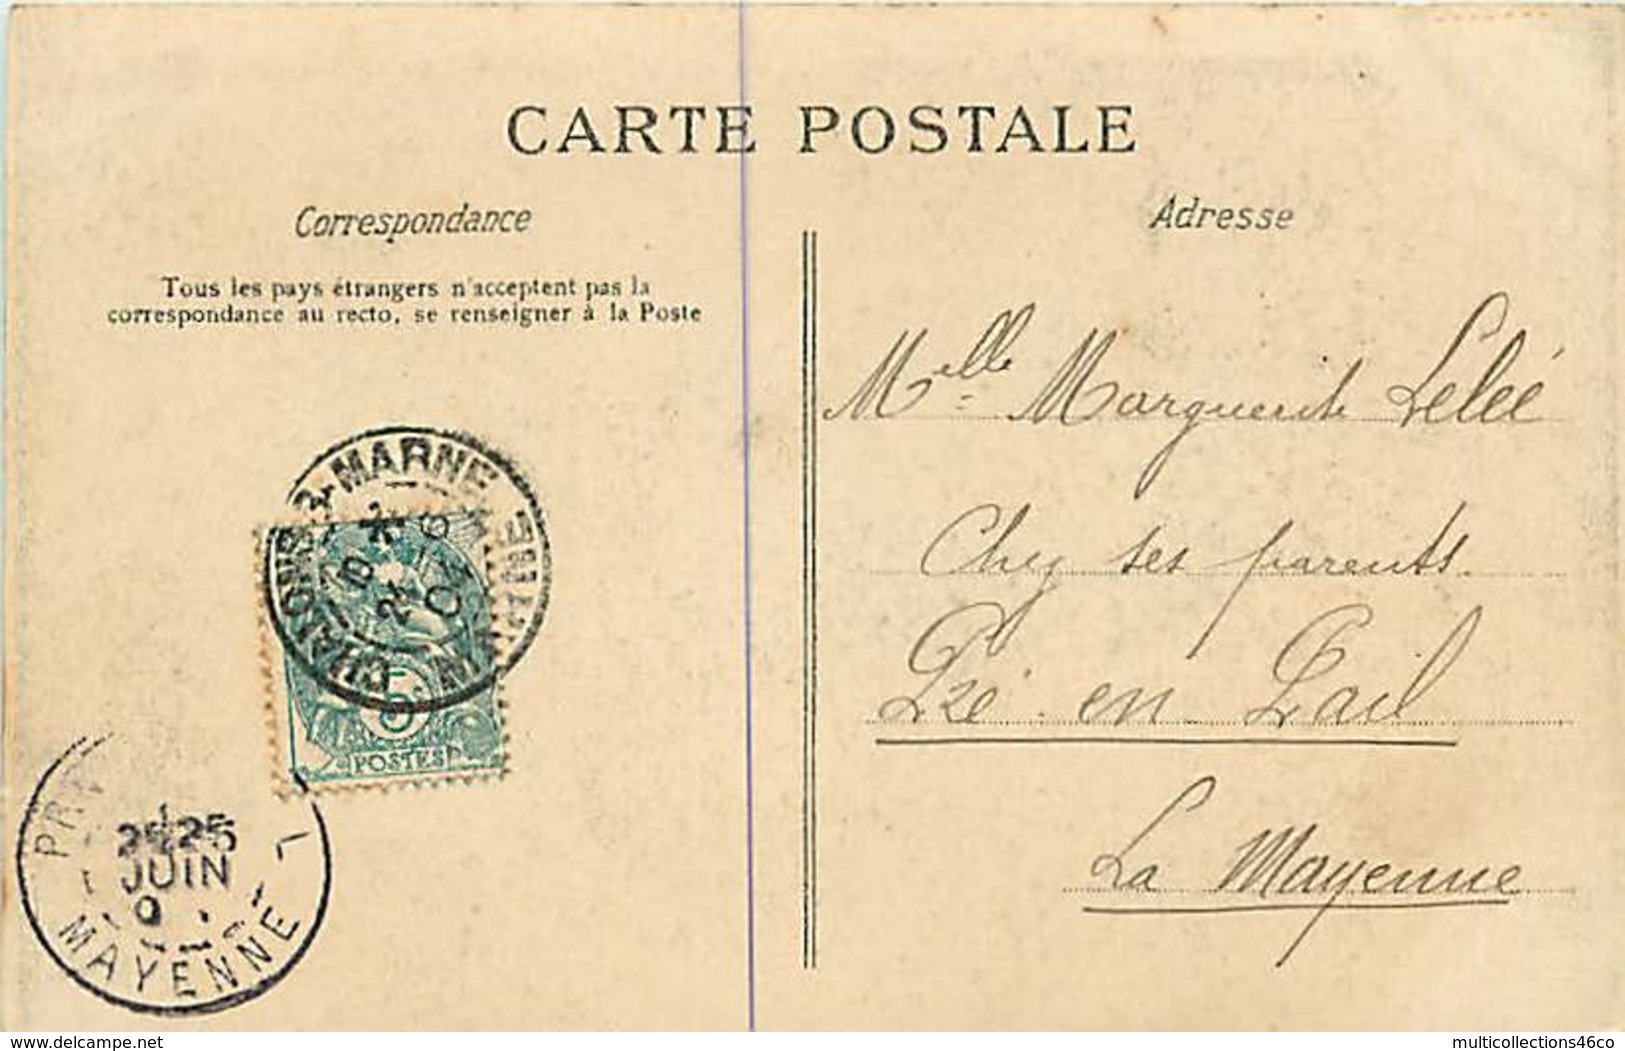 CARTE POSTALE
Correspondance
Adresse
Tous les pays étrangers n'acceptent pas la
correspondance au recto, se renseigner à la Poste
Melle Marguerite Lelée
Chez ses parents
Pré en Pail
La Mayenne
CHALONS-S-MARNE
5c
POSTES
25
JUIN
MAYENNE
delcampe.net
multicollections46co